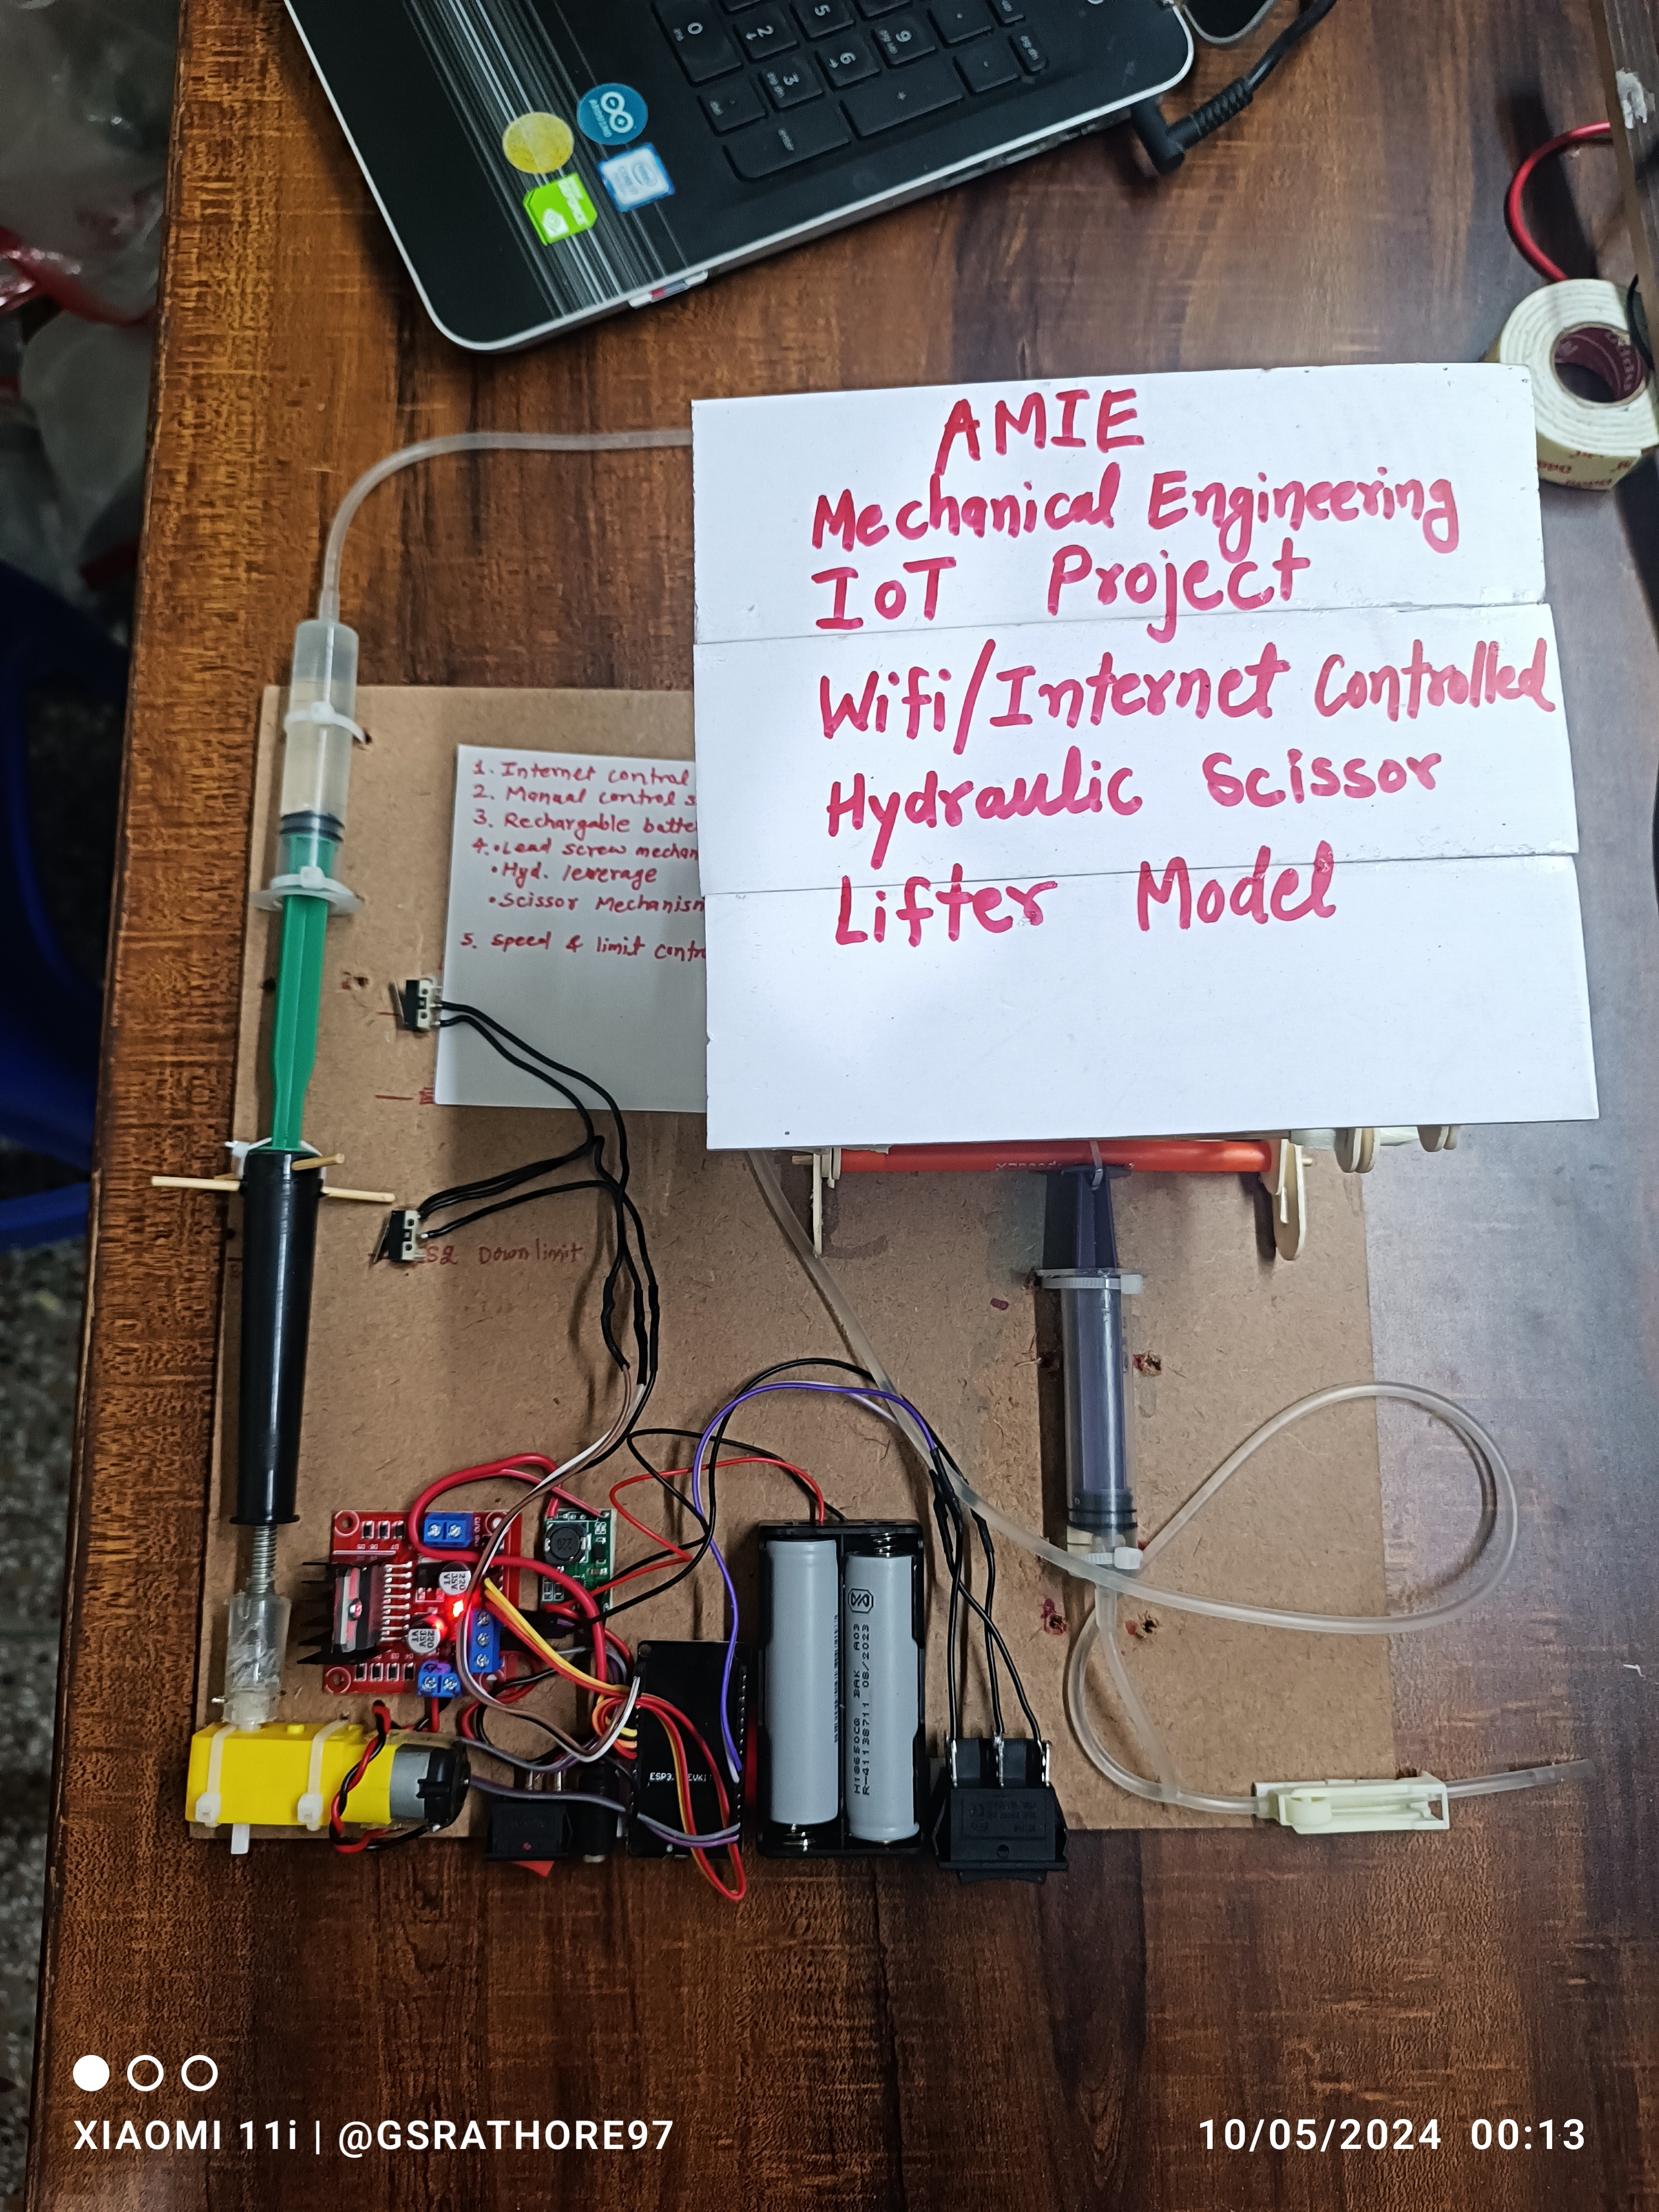 AMIE
Mechanical Engineering
IoT Project
Wifi/Internet Controlled
Hydraulic Scissor
Lifter Model
1. Internet control
2. Manual control s
3. Rechargable batte
4. • Lead screw mechan
• Hyd. leverage
• Scissor Mechanism
5. Speed & limit contr
S2 Down limit
H18650CQ BAK A03
R-41138711 08/2023
220
35V
VT
220
35V
VT
220
XIAOMI 11i | @GSRATHORE97
10/05/2024 00:13